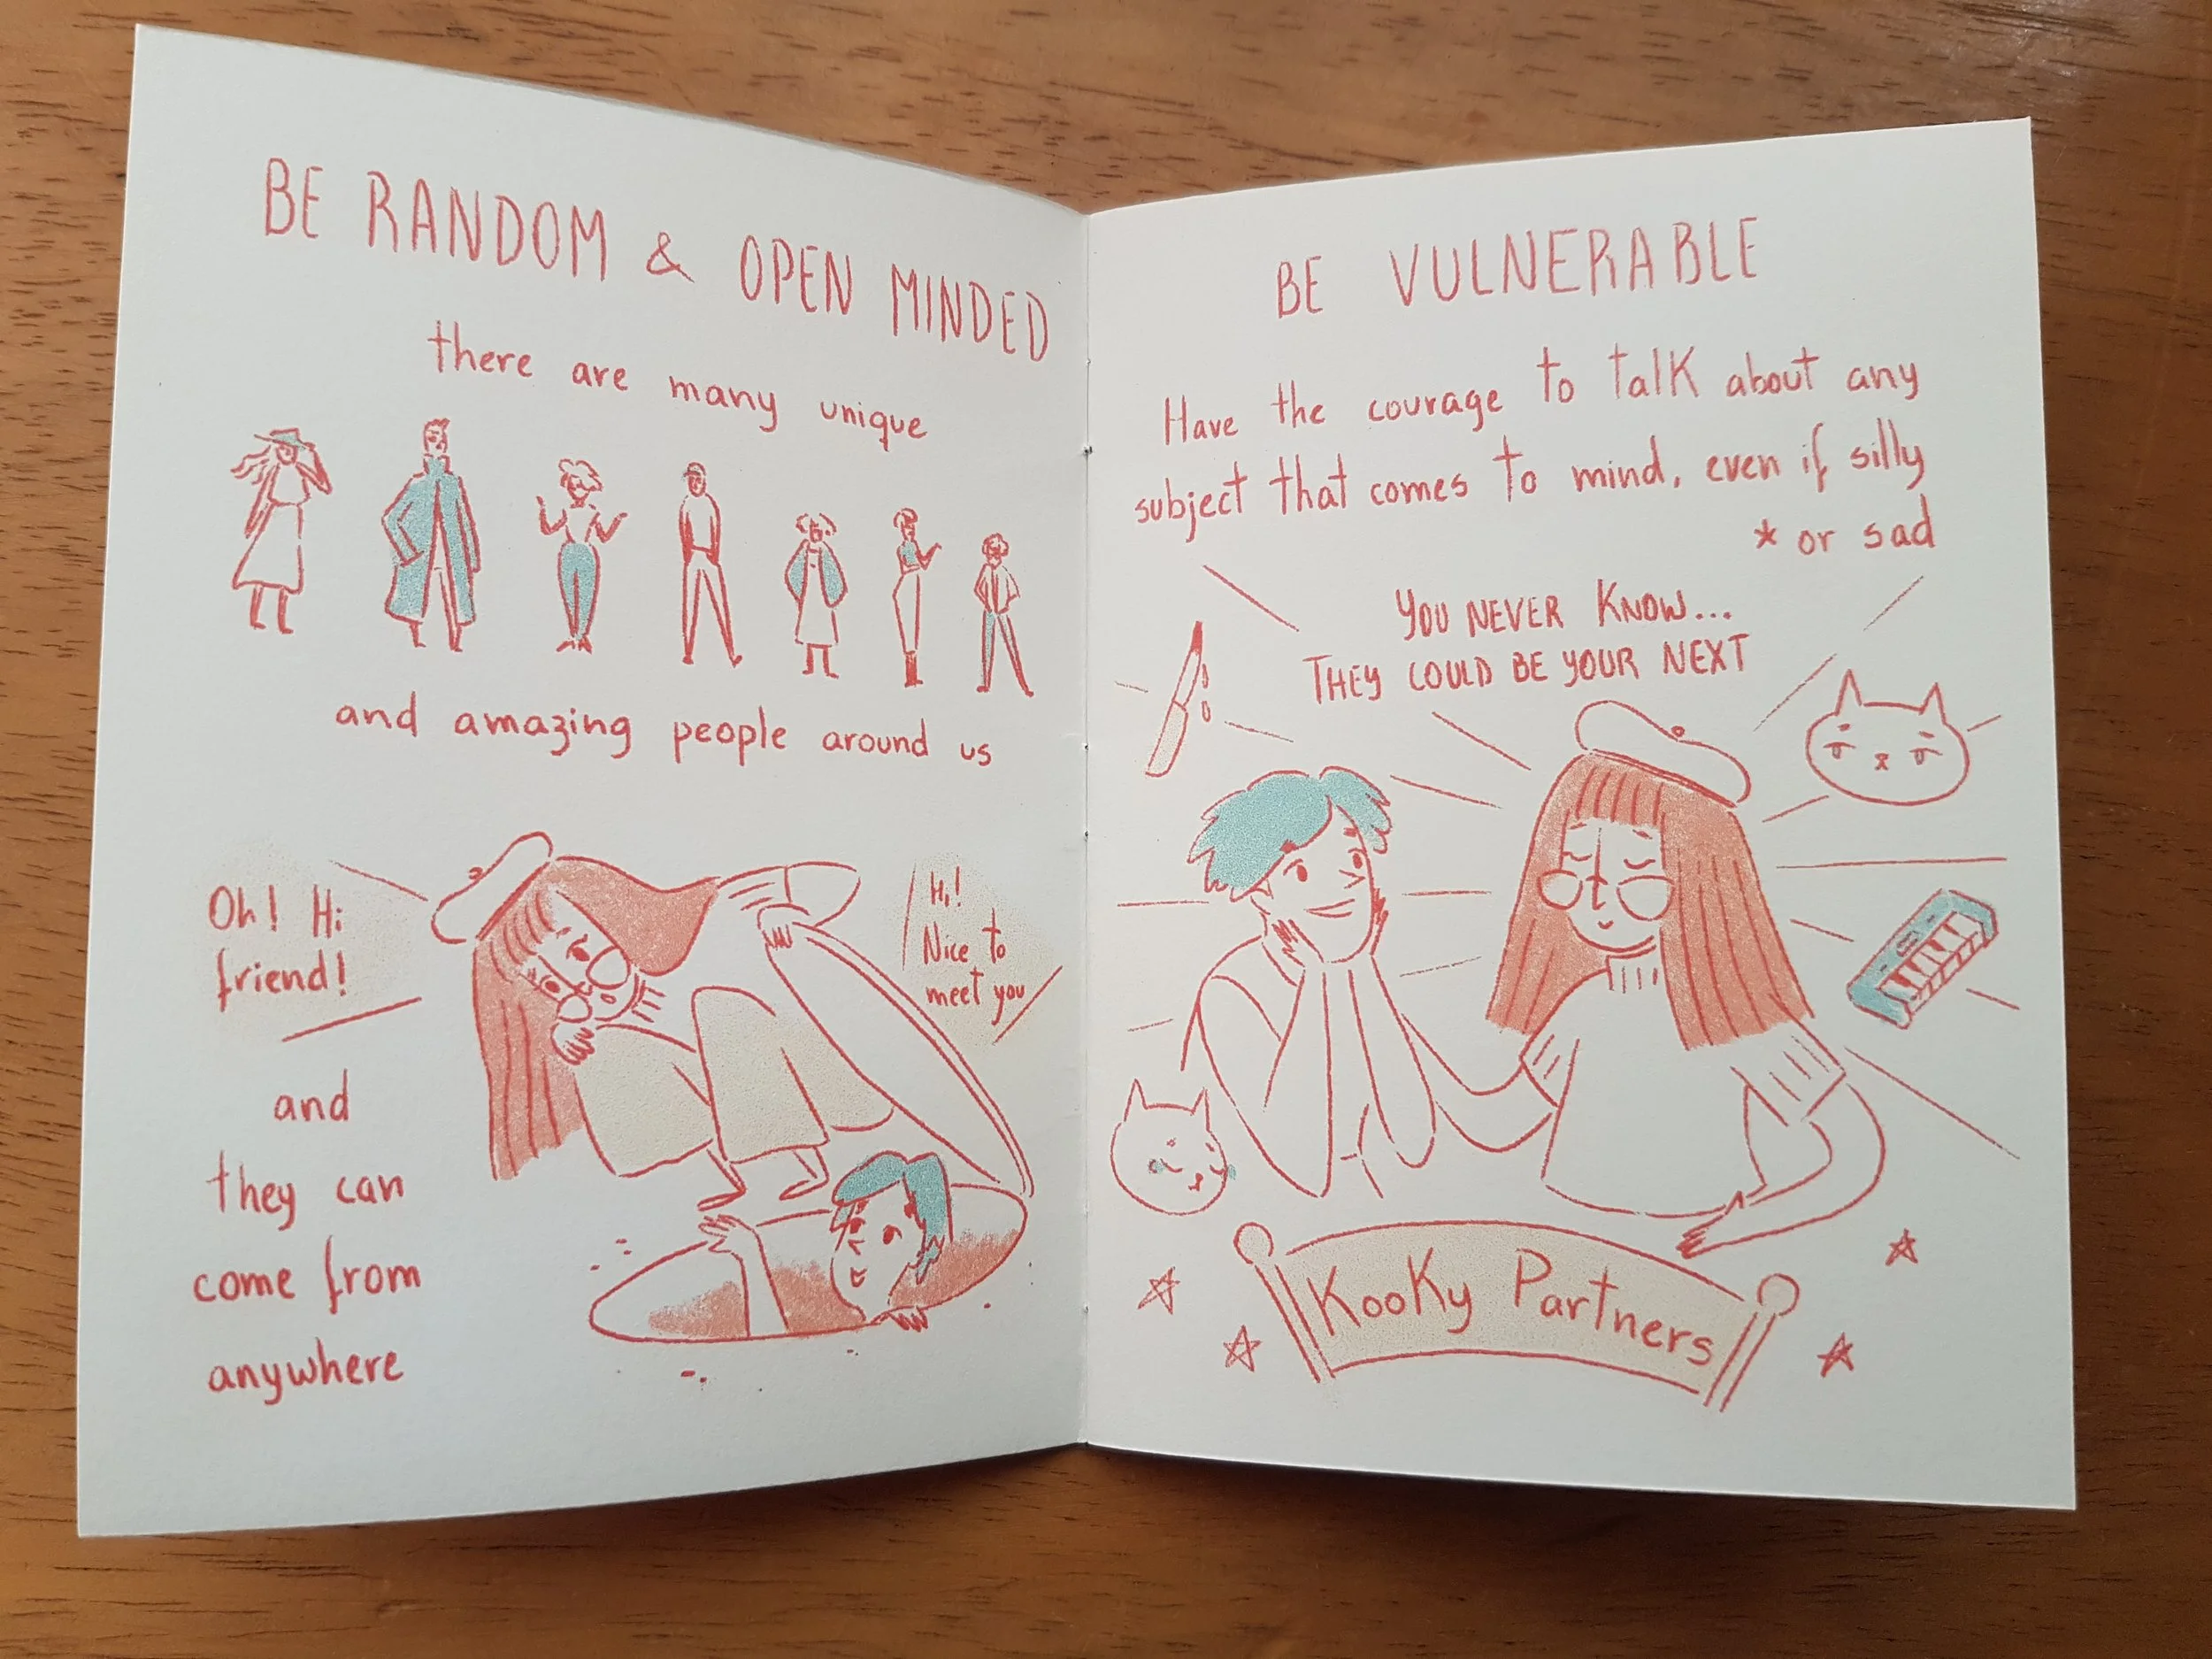 BE RANDOM & OPEN MINDED
there are many unique
and amazing people around us
Oh! Hi
friend!
Hi!
Nice to
meet you
and
they can
come from
anywhere
BE VULNERABLE
Have the courage to talk about any
subject that comes to mind, even if silly
* or sad
YOU NEVER KNOW...
THEY COULD BE YOUR NEXT
KooKy Partners